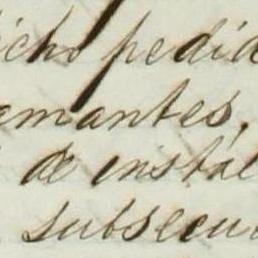 icho pedid
amantes,
de instal
subsecu